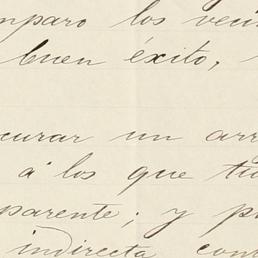 mparo los veci
buen éxito,
curar un arr
á los que tu
parente; y p
indirecta com